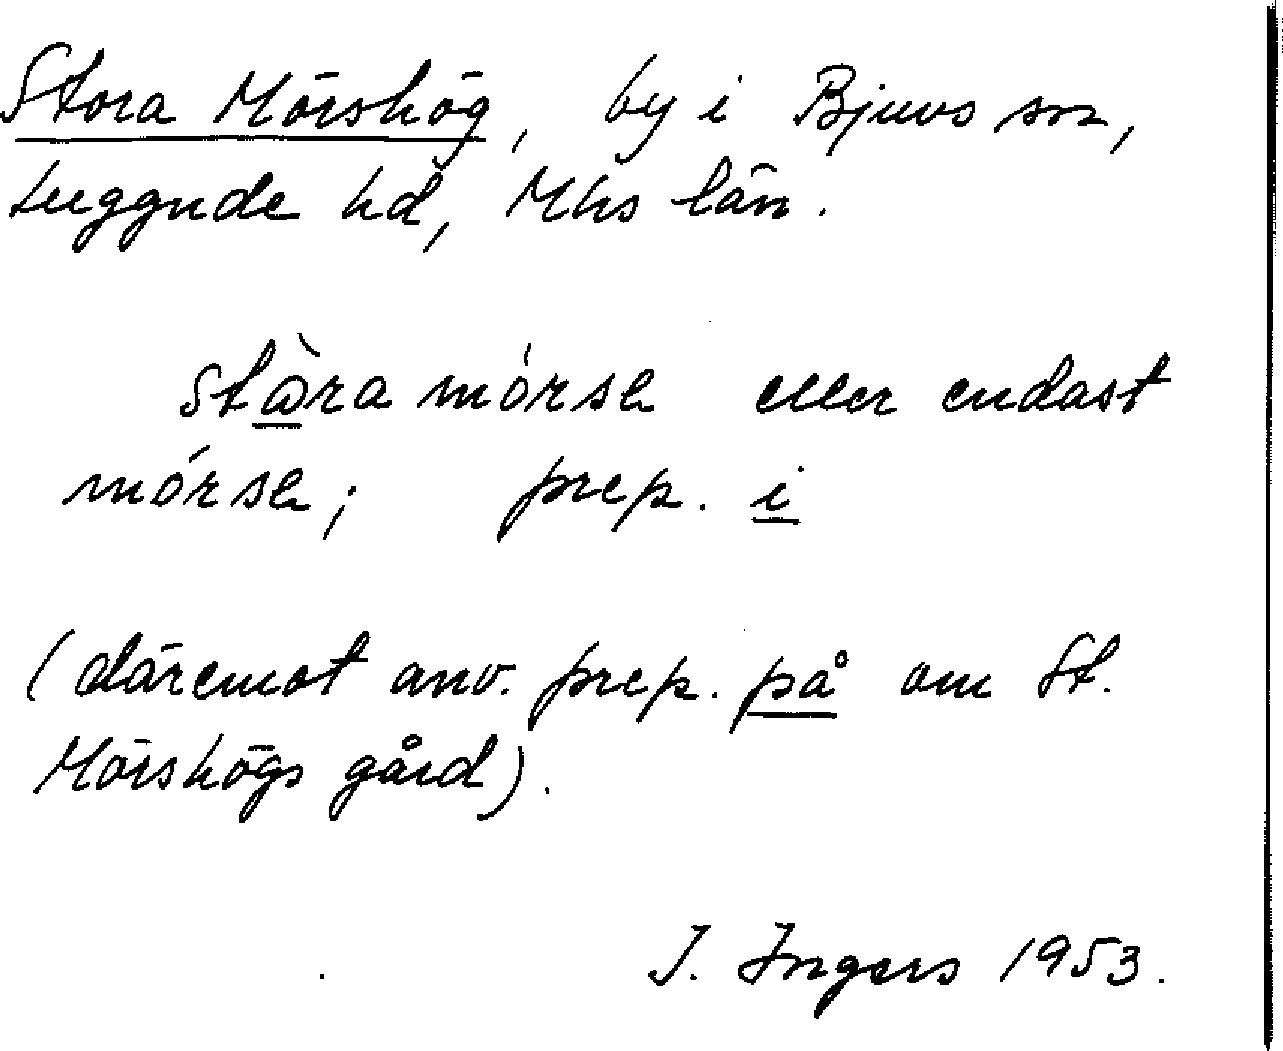 Stora Mörshög, by i Bjuvs sn,
Luggude hd, Mhs län.
stòra mórsa eller endast
mórsa; prep. i
(däremot anv. prep. på om St.
Mörshögs gård).
J. Ingers 1953.